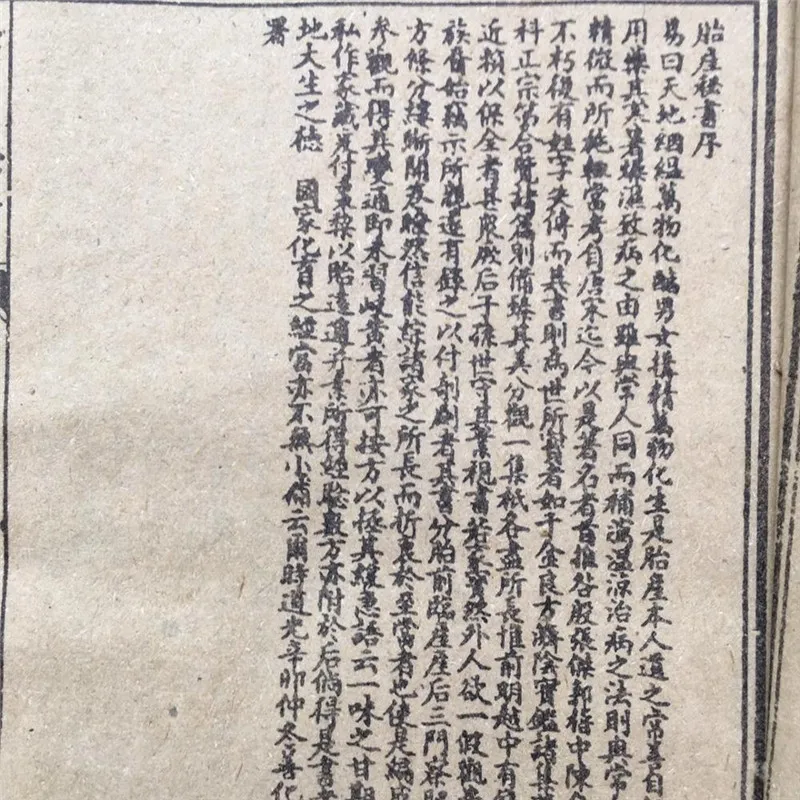 胎產秘書序
易曰天地絪縕萬物化醕男女搆精萬物化生是胎產本人道之常善自
用藥其寒暑燥濕致病之由雖與常人同而補瀉溫涼治病之法則與常
精微而所施輒當考自唐宋迄今以是著名者首推昝殷張傑郭稽中陳
不朽後有姓字失傳而其書則為世所寶者如千金良方濟陰寶鑑諸
科正宗第合覽諸篇別備臻其美分觀一集祇各盡所長惟前明越中有
近賴以保全者甚眾厥后子孫世守其業視書若家寶然外人欲一假觀
族昝始竊示所親遂有錄之以付剞劂者其書分胎前臨產產后三門寮
方條分縷晰開卷瞭然信能綜諸家之所長而折衷於至當者也使是編
參觀而得其變通即未習岐黃者亦可按方以拯其維患語云一味之甘
私作家藏爰付棗棃以胎遠邇并素所得經驗數方亦附於后倘得是書
地大生之德 國家化育之經當亦不無小補云爾時道光辛卯仲冬善化
署